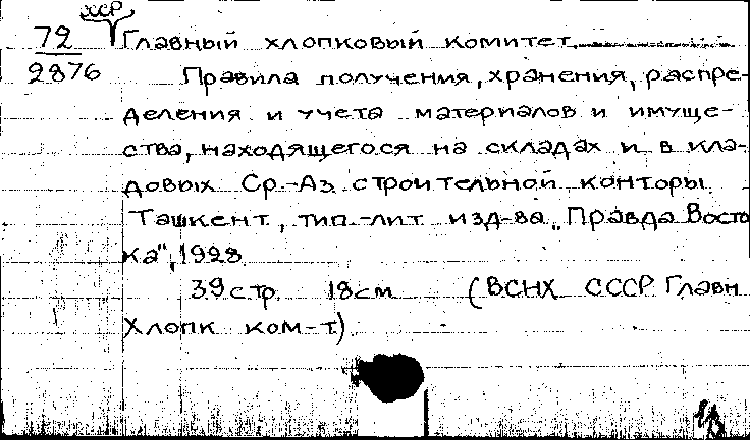 СССР
72 Главный хлопковый комитет
2876 Правила получения, хранения, распре-
деления и учета материалов и имуще-
ства, находящегося на складах и в кла-
довых Ср.-Аз. строительной конторы.
Ташкент, тип.-лит. изд-ва „Правда Восто
ка", 1928.
39 стр. 18 см (ВСНХ СССР. Главн.
Хлопк. ком-т)